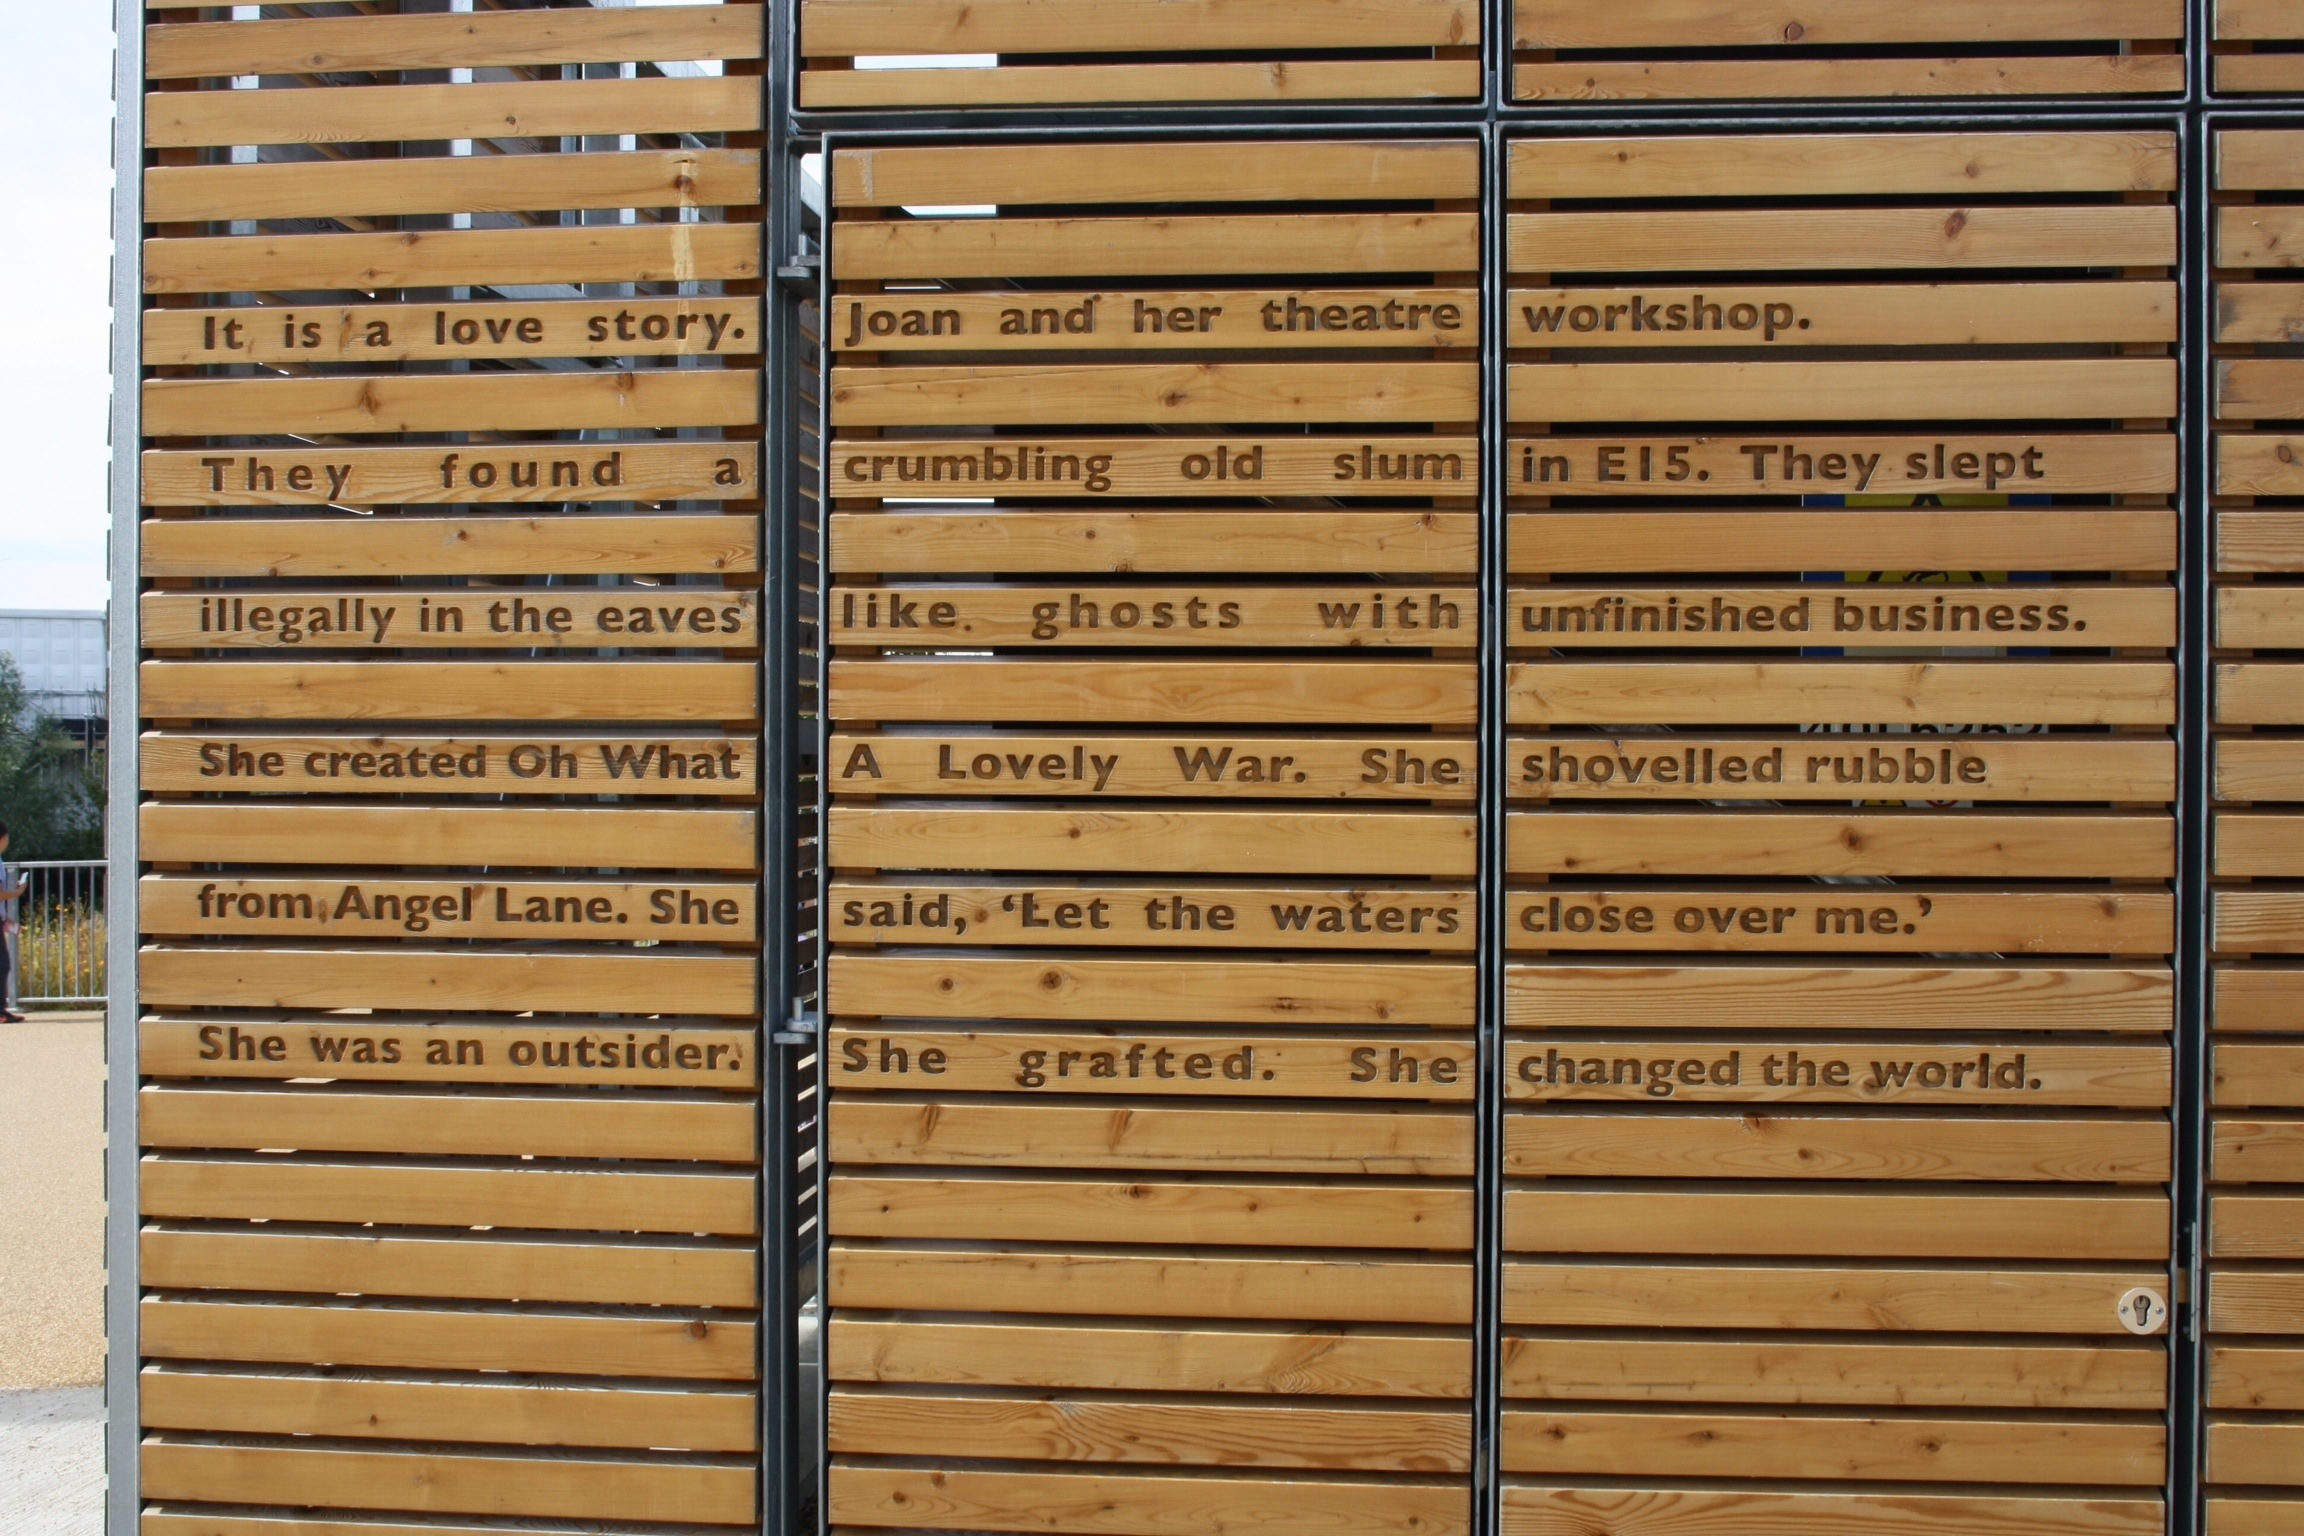 It is a love story. Joan and her theatre workshop.
They found a crumbling old slum in E15. They slept
illegally in the eaves like ghosts with unfinished business.
She created Oh What A Lovely War. She shovelled rubble
from Angel Lane. She said, ‘Let the waters close over me.’
She was an outsider. She grafted. She changed the world.